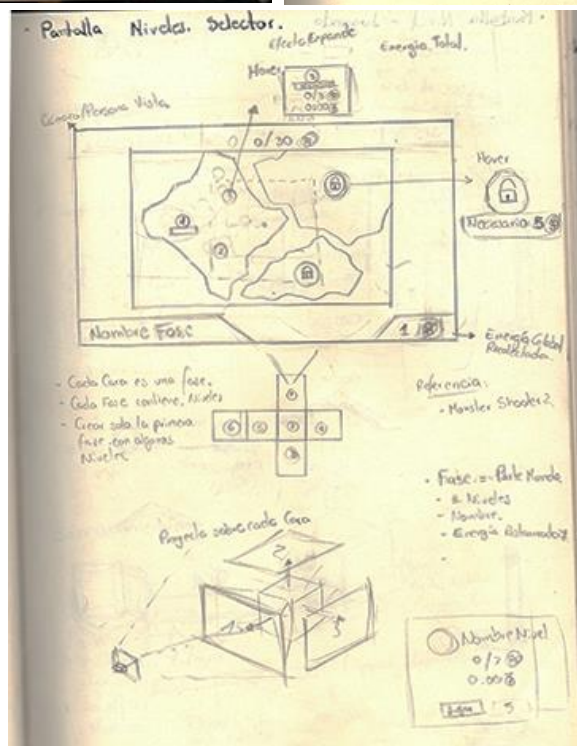 - Pantalla Niveles. Selector.
Efecto Expande
Energía Total.
Hover
0/3
0.00
Vista
0/30
Hover
1
2
3
Necesario 5
Nombre Fase
1
Energía Global
Recolectada.
- Cada Cara es una fase.
- Cada Fase contiene Niveles
- Crear solo la primera
fase con algunos
Niveles
Referencia:
- Monster Shooter 2.
- Fase = Parte Mundo
- # Niveles
- Nombre.
- Energía
Proyecta sobre cada Cara
2
1
3
Nombre Nivel
0/3
0.00
5